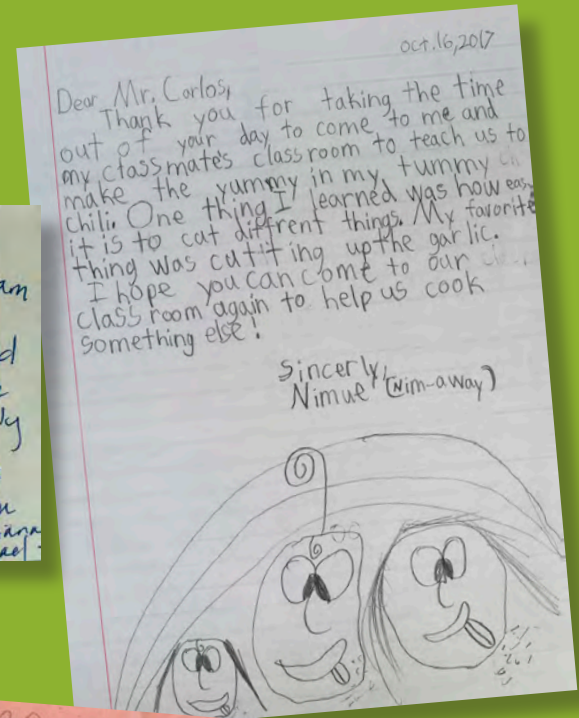 oct.16,2017
Dear Mr. Carlos,
Thank you for taking the time
out of your day to come to me and
my classmate's classroom to teach us to
make the yummy in my tummy
chili. One thing I learned was how easy
it is to cut diffrent things. My favorite
thing was cutting up the garlic.
I hope you can come to our
classroom again to help us cook
something else!
Sincerly,
Nimue (Nim-away)
am
d